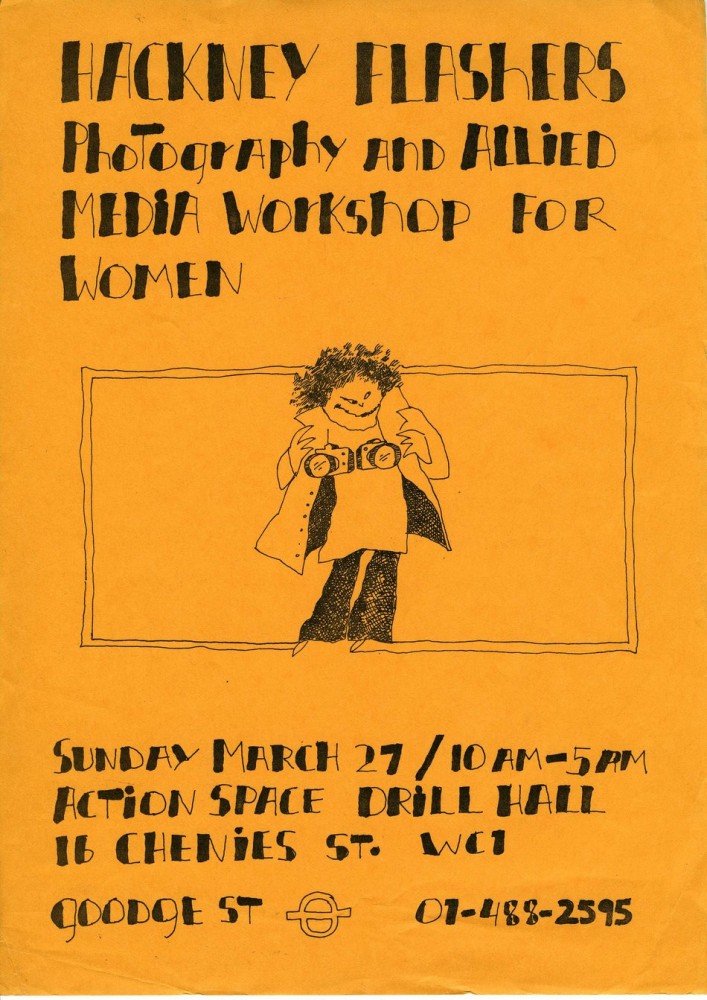 HACKNEY FLAShERS
PhoTogrAphy AND ALLiED
MEDiA WorKShop FOR
WOMEN
SUNDAY MARCH 27 / 10 AM-5PM
ACTiON SPACE DRiLL HALL
16 CHENiES ST. WC1
GOODGE ST
01-488-2595